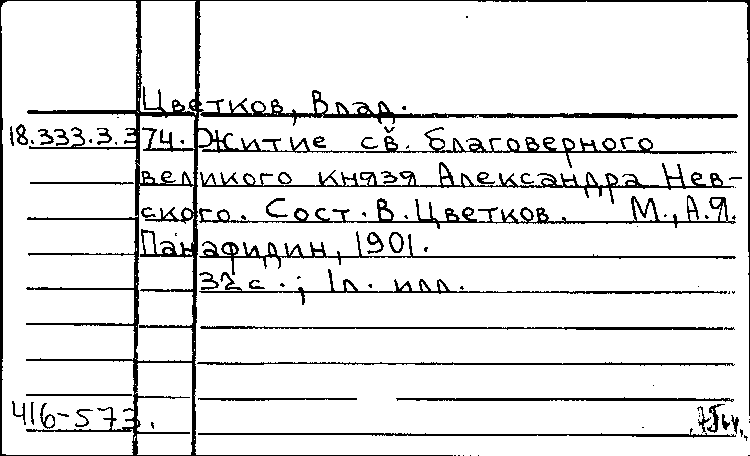 Цветков, Влад.
18.333.3.374. Житие св. благоверного
великого князя Александра Нев-
ского. Сост. В. Цветков. М., А.Я.
Панафидин, 1901.
32 с.; 1 л. илл.
416-573.